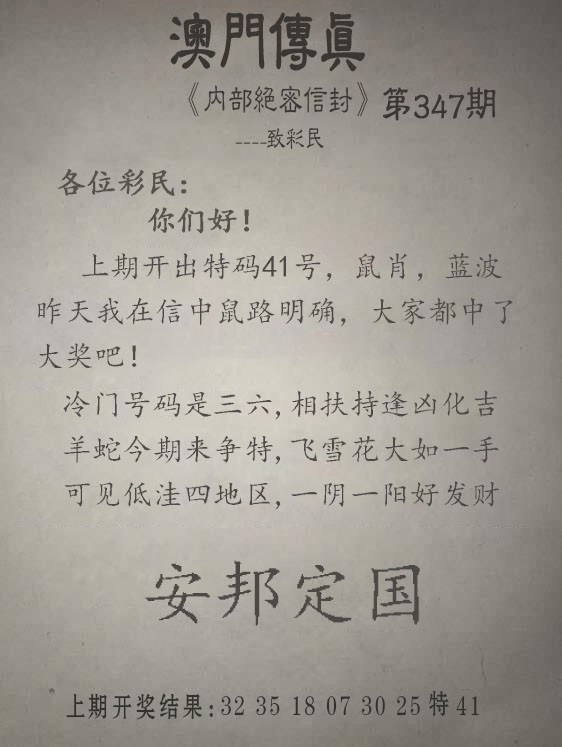 澳門傳眞
《内部絕密信封》第347期
----致彩民
各位彩民:
你们好!
上期开出特码41号，鼠肖，蓝波
昨天我在信中鼠路明确，大家都中了
大奖吧!
冷门号码是三六,相扶持逢凶化吉
羊蛇今期来争特,飞雪花大如一手
可见低洼四地区,一阴一阳好发财
安邦定国
上期开奖结果:32 35 18 07 30 25 特 41